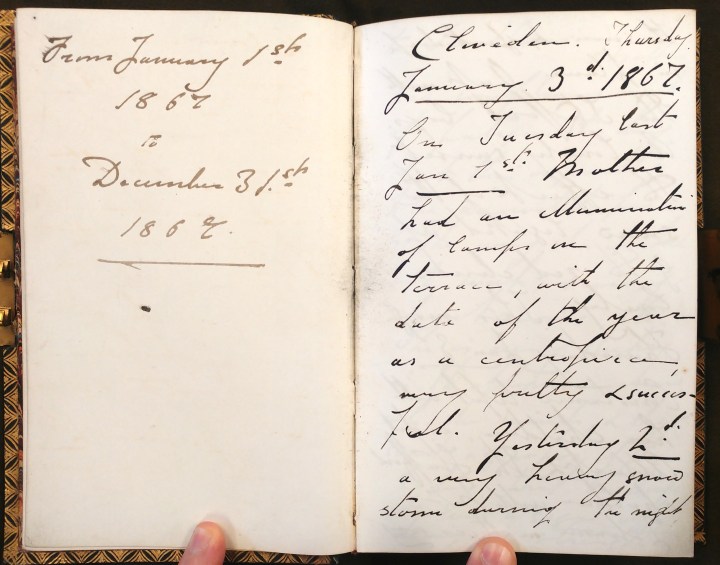 From January 1st
1867
to
December 31.st
1867.
Cliveden. Thursday
January 3d. 1867.
On Tuesday last
Jan 1st. Mother
had an illumination
of lamps on the
terrace, with the
date of the year
as a centrepiece,
very pretty & succes-
ful. Yesterday 2d.
a very heavy snow
storm during the night